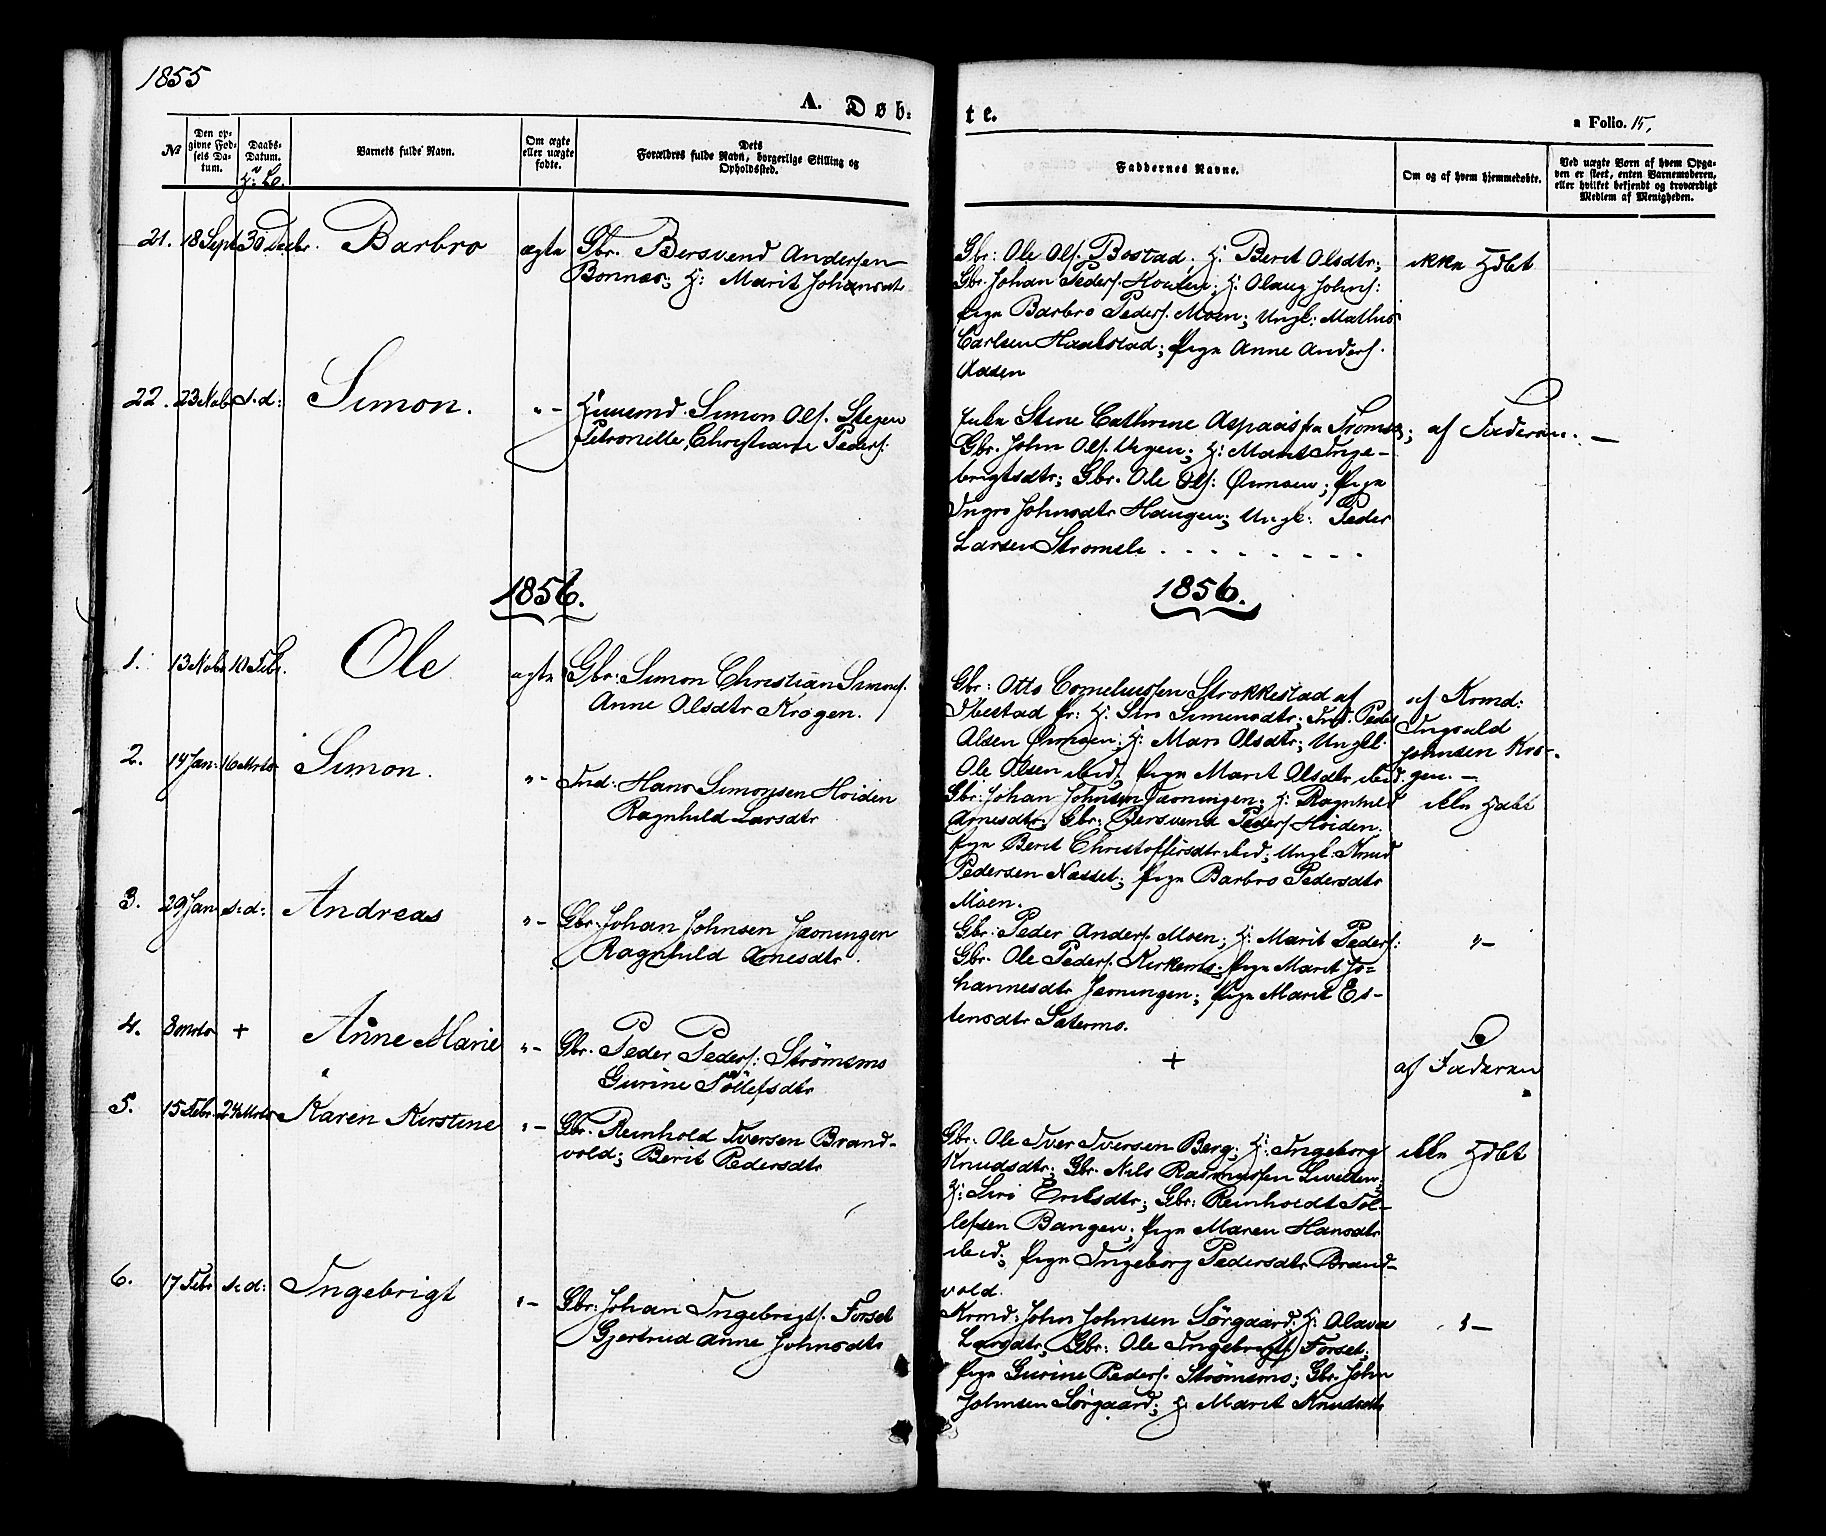 1855
A. Døb-
te.
a Folio. 15,
№
Den op-
givne Fød-
sels Da-
tum.
Daabs-
Datum.
Barnets fulde Navn.
Om ægte
eller uægte
fødte.
Dets
Forældres fulde Navn, borgerlige Stilling og
Opholdssted.
Faddernes Navne.
Om og af hvem hjemmedøbte.
Ved uægte Børn af hvem Opga-
ven er skeet, enten Barnemoderen,
eller hvilket bekjendt og troværdigt
Medlem af Menigheden.
21. 18 Sept 30 Decbr. Barbro ægte Gbr. Bersvend Andersen
Bonnes; H: Marit Johansdt
Gbr: Ole Ols. Bostad; H: Berit Olsdtr;
Gbr. Johan Peders. H: Olaug Johns:
Pige Barbro Peders. Moen; Ungk: Mathis
Carlsen; Pige Anne Anders.
Aasen
ikke Hdbt
22. 23 Nob s.d: Simon. "- Simon Ols. Stegen
Petronelle Christiane Peders.
Stine Cathrine fra Tromsø;
Gbr. John Ols. H: Marit Inge-
brigtsdtr; Gbr. Ole Ols: Pige
Ingro Johnsdtr Haugen; Ungk: Peder
Larsen Strømsli
af Faderen. —
1856.
1856.
1. 13 Nob 10 Feb. Ole ægte Gbr: Simon Christian Simons.
Anne Olsdtr Krogen.
Gbr: Otto Corneliussen Strokkestad af
Ibestad Pr: H: Siri Simensdtr; Ind. Peder
Olsen H: Mari Olsdtr; Ungkl.
Ole Olsen ibid; Pige Marit Olsdtr ibid.
af Krmd:
Ingvald
Johnsen Kro-
gen. —
2. 14 Jan: 16 Mrts Simon. "- Ind: Hans Simonsen Høiden
Ragnhild Larsdtr
Gbr: Johan Johnsen Fæningen; H: Ragnhild
Arnesdtr; Gbr: Bersvend Peders. Høiden.
Pige Berit Christoffersdtr ibid; Ungk: Knud
Pedersen Næsset; Pige Barbro Pedersdtr
Moen.
ikke Hdbt
3. 29 Jan s.d: Andreas "- Gbr. Johan Johnsen
Ragnhild Arnesdtr.
Gbr: Peder Anders. Moen; H: Marit Peders:
Gbr. Ole Peders. Kirkemo; Pige Marit Jo-
hannesdtr; Pige Marit Es-
tensdtr Sætermo.
"-
4. 8 Mrts + Anne Marie "- Gbr. Peder Peders: Strømsmo
Gurine Tollefsdtr
+
af Faderen
5. 15 Febr. 24 Mrts Karen Kirstine "- Gbr. Reinhold Iversen Brand-
vold; Berit Pedersdtr
Gbr. Ole Iver Iversen Berg; H: Ingeborg
Knudsdtr; Gbr. Nils Rasmussen
H: Siri Eriksdtr; Gbr: Reinholdt Tol-
lefsen Bangen; Pige Maren Hansdtr
ibid; Pige Ingeborg Pedersdtr Brand-
vold.
ikke Hdbt
6. 17 Febr s.d: Ingebrigt "- Gbr: Johan Ingebrigts. Forset
Gjertrud Anne Johnsdtr
Krmd: John Johnsen Sørgaard; H: Olava
Larsdtr; Gbr: Ole Ingebrigts. Forset;
Pige Gurine Peders. Strømsmo; Gbr. John
Johnsen Sørgaard; H: Marit Knudsdtr
"-